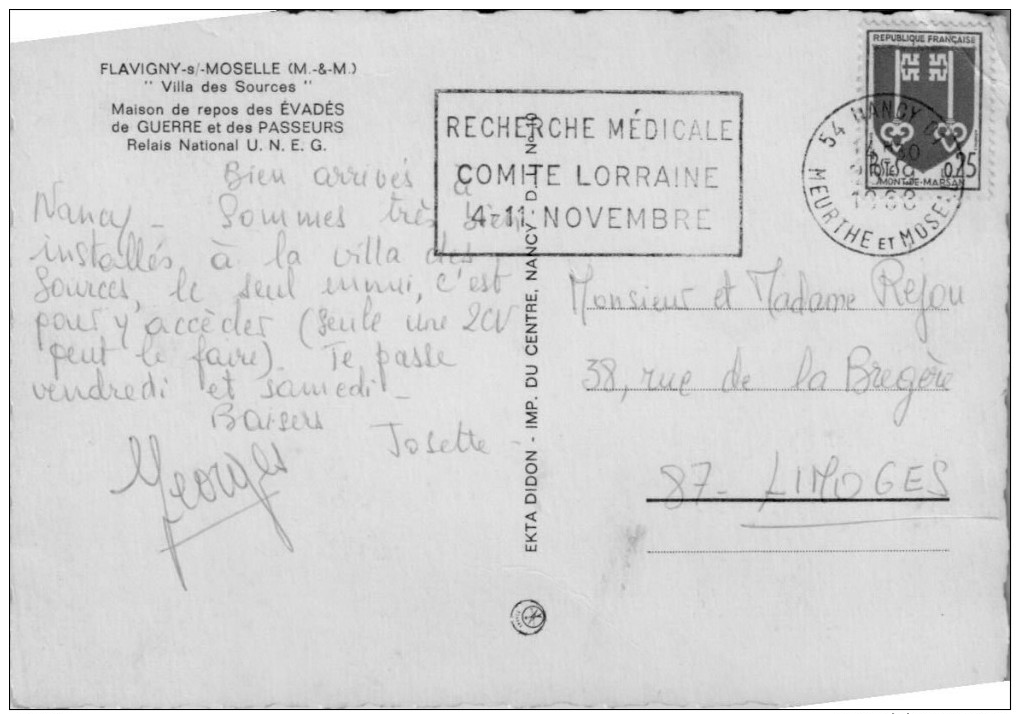 FLAVIGNY-s/-MOSELLE (M.-&-M.)
" Villa des Sources "
Maison de repos des ÉVADÉS
de GUERRE et des PASSEURS
Relais National U. N. E. G.
Bien arrivés à
Nancy - Sommes très bien
installés à la villa des
Sources, le seul ennui, c'est
pour y'accéder (seule une 2CV
peut le faire). Te passe
vendredi et samedi -
Baisers
Josette -
Georges
RECHERCHE MÉDICALE
COMITE LORRAINE
4-11 NOVEMBRE
EKTA DIDON - IMP. DU CENTRE, NANCY D. No 10
REPUBLIQUE FRANÇAISE
POSTES
0,25
MONT-DE-MARSAN
54 NANCY
1968
MEURTHE ET MOSELLE
Monsieur et Madame Rejou
38, rue de la Bregère
87 - LIMOGES